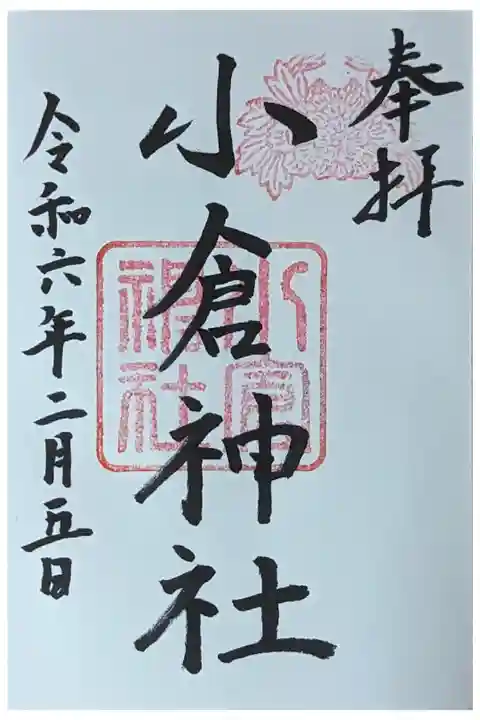 奉拝
小倉神社
小倉神社
令和六年二月五日